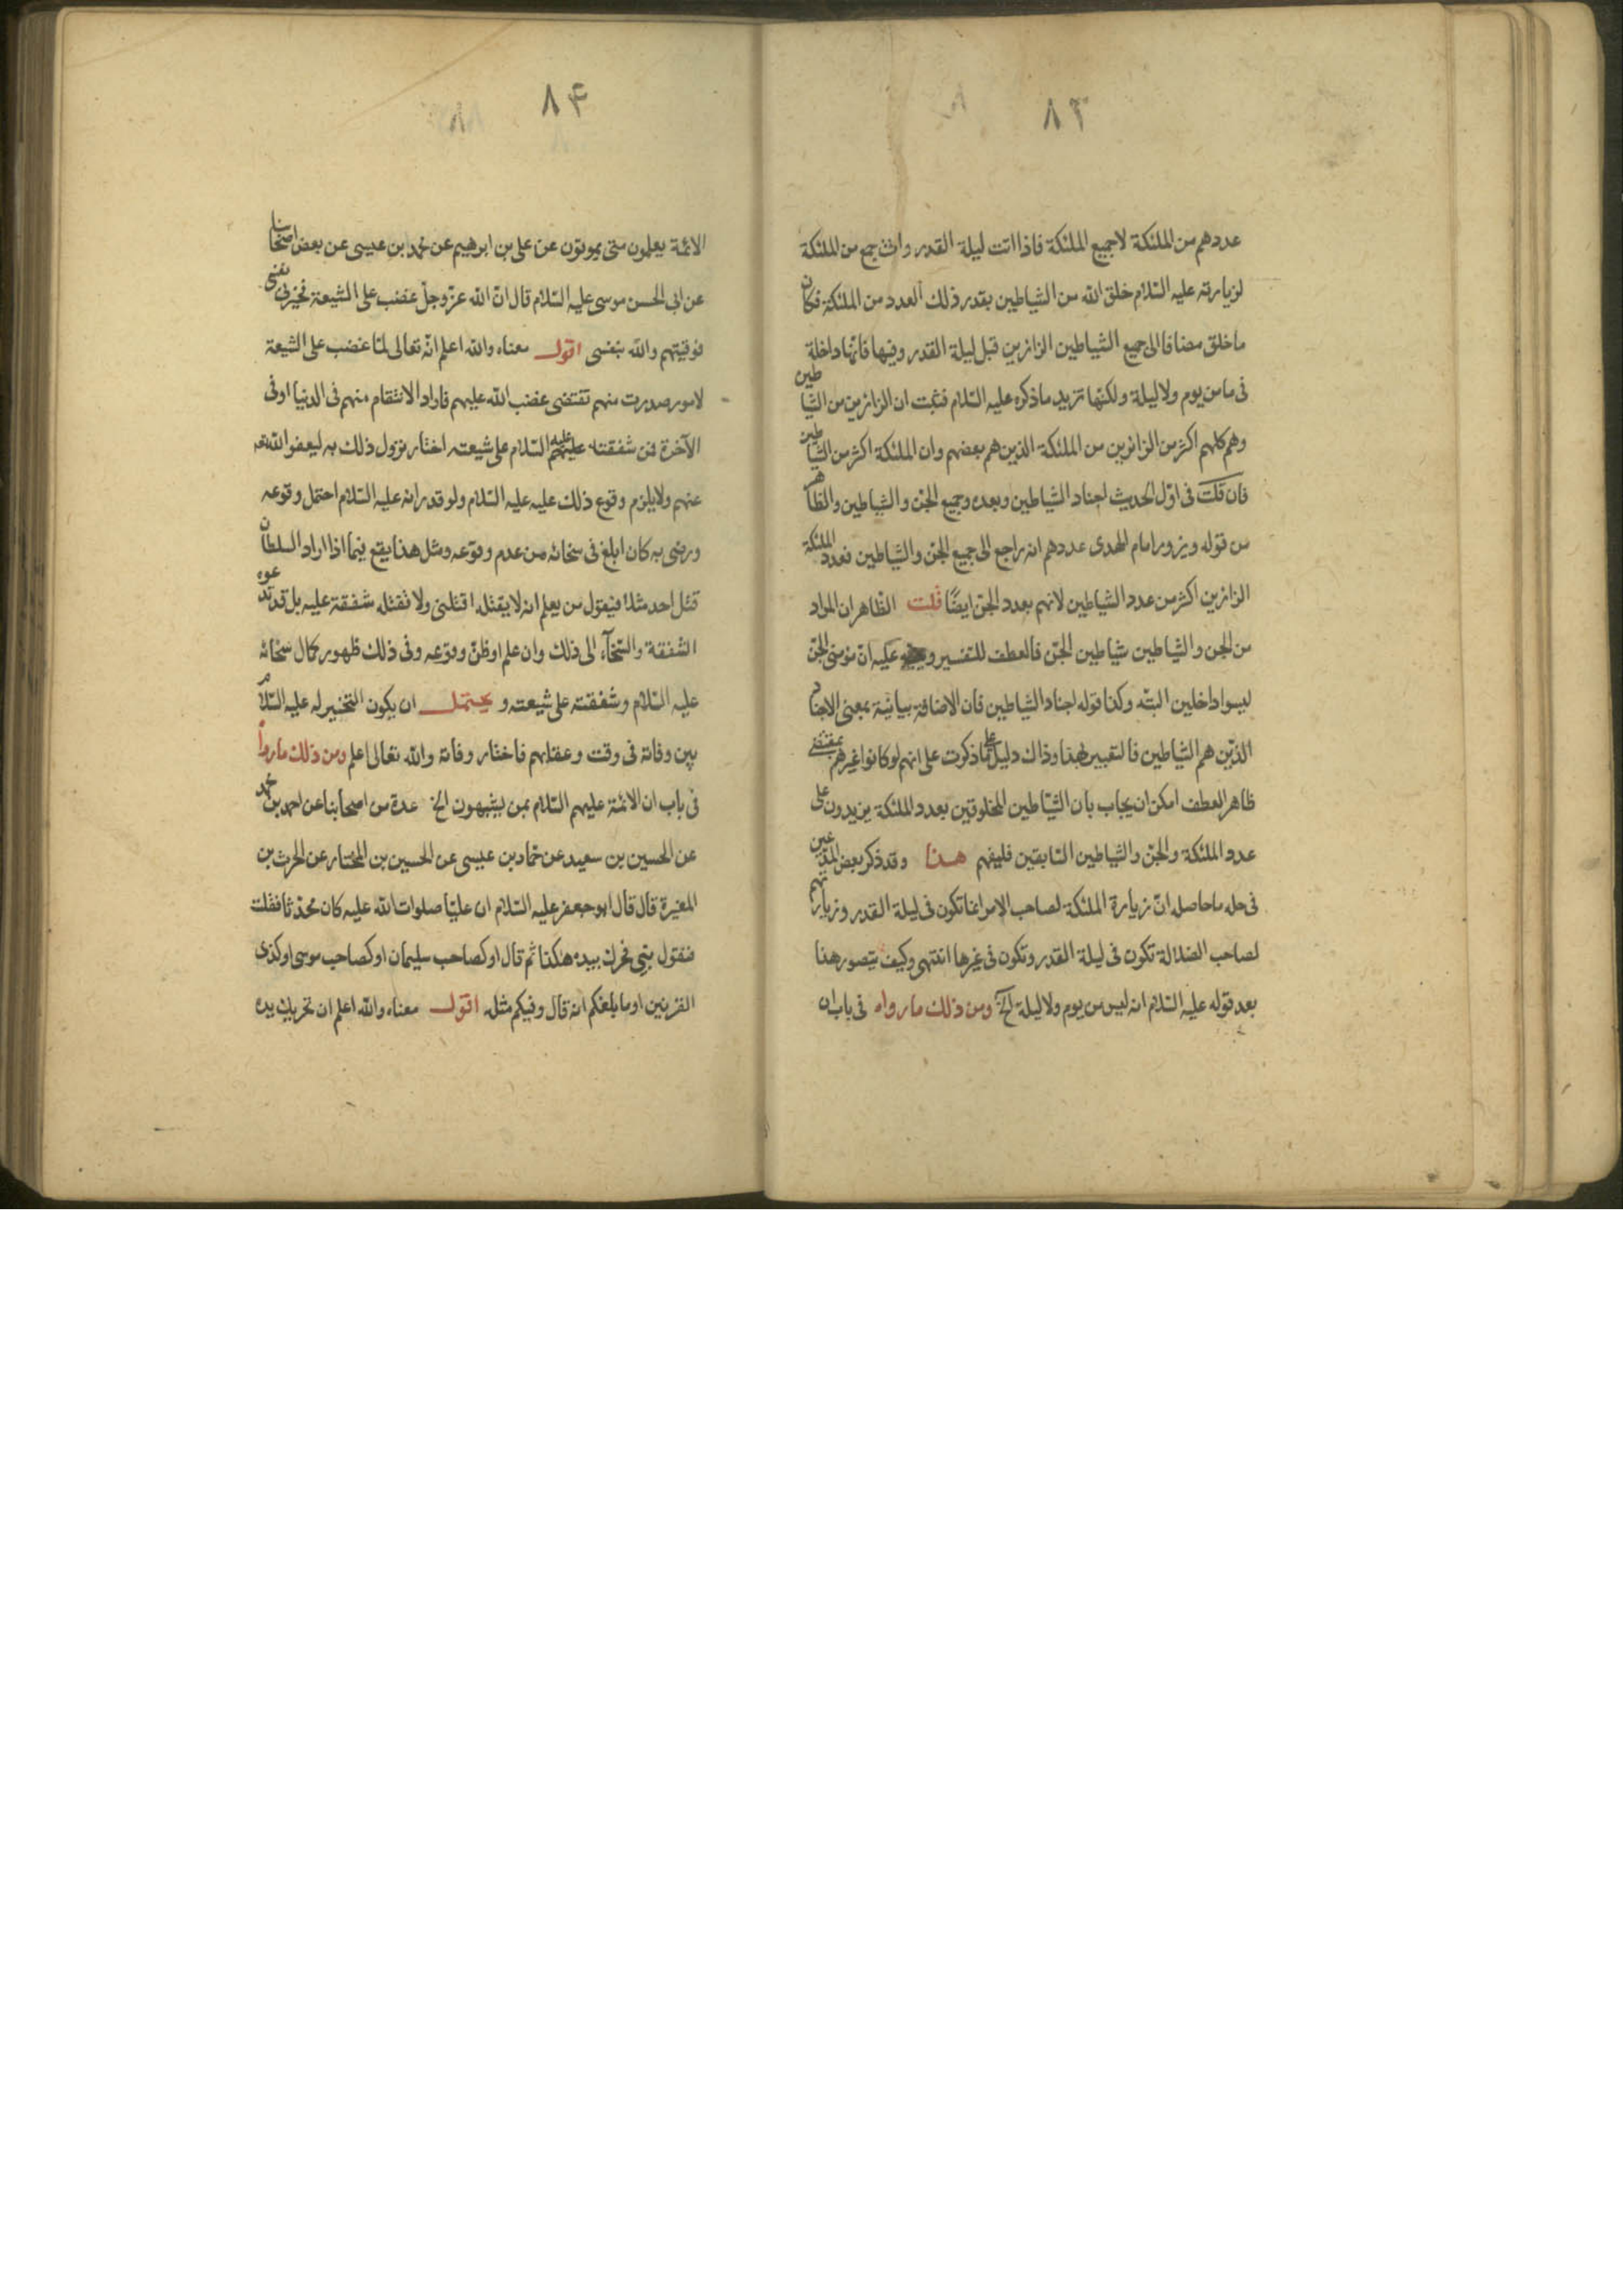 ٨٣
عددهم من الملئكة لا جميع الملئكة فاذا اتت ليلة القدر واتت جمع من الملئكة
لزيارته عليه السّلام خلق الله من الشياطين بقدر ذلك العدد من الملئكة فكان
ما خلق مضافا الى جميع الشياطين الزائرين قبل ليلة القدر وفيها فانّها داخلة
فى ما من يوم ولا ليلة ولكنّها تزيد ما ذكره عليه السّلام فثبت ان الزائرين من الشياطين
وهم كلهم اكثر من الزائرين من الملئكة الذين هم بعضهم وان الملئكة اكثر من الشياطين
فان قلت فى اوّل الحديث اجناد الشياطين وبعده وجميع الجن والشياطين والظاهر
من قوله ويزور امام الهدى عددهم انه راجع الى جميع الجنّ والشياطين فعدد الملئكة
الزائرين اكثر من عدد الشياطين لانهم بعدد الجن ايضًا قلت الظاهر ان المراد
من الجن والشياطين شياطين الجنّ فالعطف للتفسير عليه انّ مؤمنى الجنّ
ليسوا داخلين البتّه وكذا قوله اجناد الشياطين فان الاضافة بيانيّة بمعنى الاجناد
الذين هم الشياطين فالتعبير بهذا وذاك دليل على ما ذكرت على انهم لو كانوا غيرهم بمقتضى
ظاهر العطف امكن ان يجاب بان الشياطين المخلوقين بعدد الملئكة يزيدون على
عدد الملئكة والجنّ والشياطين السّابقين فليفهم هذا وقد ذكر بعض المدّعين
فى حله ما حاصله انّ زيارة الملئكة لصاحب الامر انما تكون فى ليلة القدر وزيارتهم
لصاحب الضلالة تكون فى ليلة القدر وتكون فى غيرها انتهى وكيف يتصور هذا
بعد قوله عليه السّلام انه ليس من يوم ولا ليلة الخ ومن ذلك ما رواه فى باب ان
٨۴
الائمّة يعلمون متى يموتون عن على بن ابرهيم عن محمد بن عيسى عن بعض اصحابنا
عن ابى الحسن موسى عليه السّلام قال انّ الله عزّ وجلّ غضب على الشيعة فخيّرنى نفسى
فوقيتهم والله بنفسى اقول معناه والله اعلم انّه تعالى لمّا غضب على الشيعة
لامور صدرت منهم تقتضى غضب الله عليهم فاراد الانتقام منهم فى الدنيا او فى
الآخرة فمن شفقته عليه السّلام على شيعته اختار نزول ذلك به ليعفو الله تعالى
عنهم ولا يلزم وقوع ذلك عليه عليه السّلام ولو قدر انه عليه السّلام احتمل وقوعه
ورضى به كان ابلغ فى سخائه من عدم وقوعه ومثل هذا يقع فيما اذا اراد السلطان
قتل احد مثلا فيقول من يعلم انه لا يقتله اقتلنى ولا تقتله شفقة عليه بل قد تدعوه
الشفقة والسّخاء الى ذلك وان علم او ظنّ وقوعه وفى ذلك ظهور كمال سخائه
عليه السّلام وشفقته على شيعته و يحتمل ان يكون التخيير له عليه السّلام
بين وفاته فى وقت وعقابهم فاختار وفاته والله تعالى اعلم ومن ذلك ما رواه
فى باب ان الائمّة عليهم السّلام بمن يشبهون الخ عدة من اصحابنا عن احمد بن محمد
عن الحسين بن سعيد عن حمّاد بن عيسى عن الحسين بن المختار عن الحرث بن
المغيرة قال قال ابو جعفر عليه السّلام ان عليّا صلوات الله عليه كان محدّثا فقلت
فتقول نبىّ فحرك بيده هكذا ثم قال او كصاحب سليمان او كصاحب موسى او كذى
القرنين او ما بلغكم انه قال وفيكم مثله اقول معناه والله اعلم ان تحريك يده